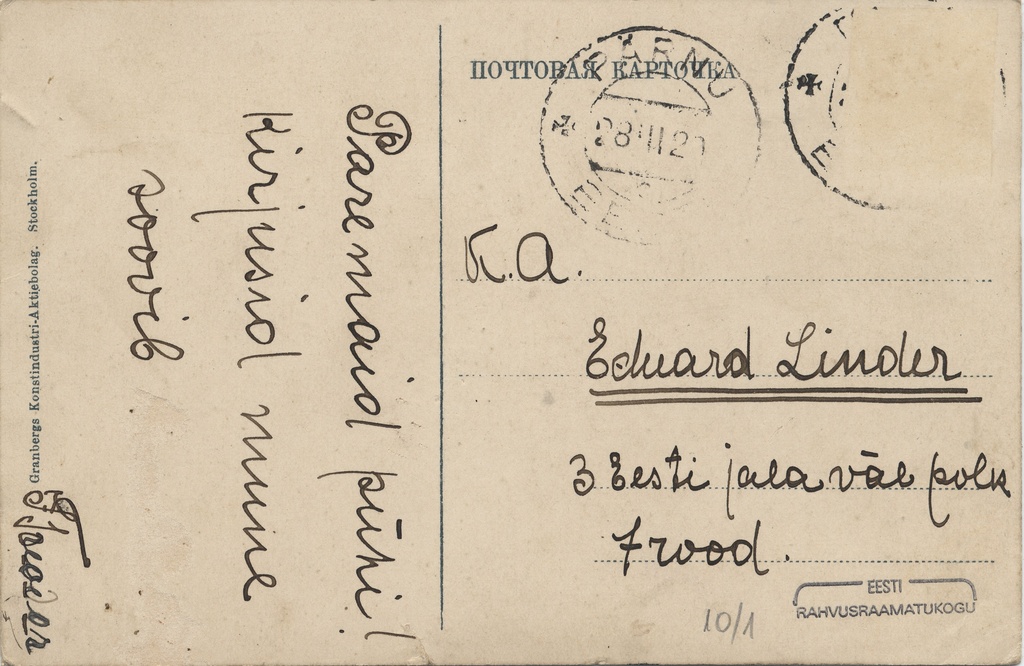 Paremaid pühi!
Kirjusid mune
soovib
Granbergs Konstindustri-Aktiebolag. Stockholm.
ПОЧТОВАЯ КАРТОЧКА
PÄRNU
28 III 2
EESTI
E
K. A.
Eduard Linder
3 Eesti jala väe polk
7 rood.
10/1
EESTI
RAHVUSRAAMATUKOGU